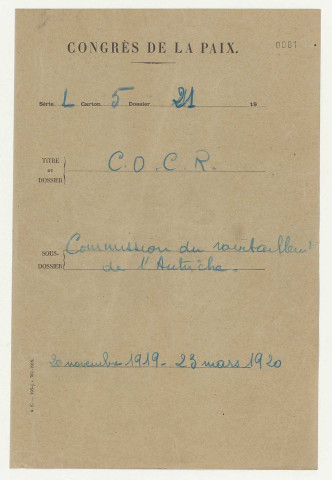 CONGRÈS DE LA PAIX.
0001
Série, L Carton, 5 Dossier 21 19
TITRE
DU
DOSSIER
C.O.C.R.
SOUS-
DOSSIER
Commission du ravitaillemt
de l'Autriche.
20 novembre 1919 - 23 mars 1920